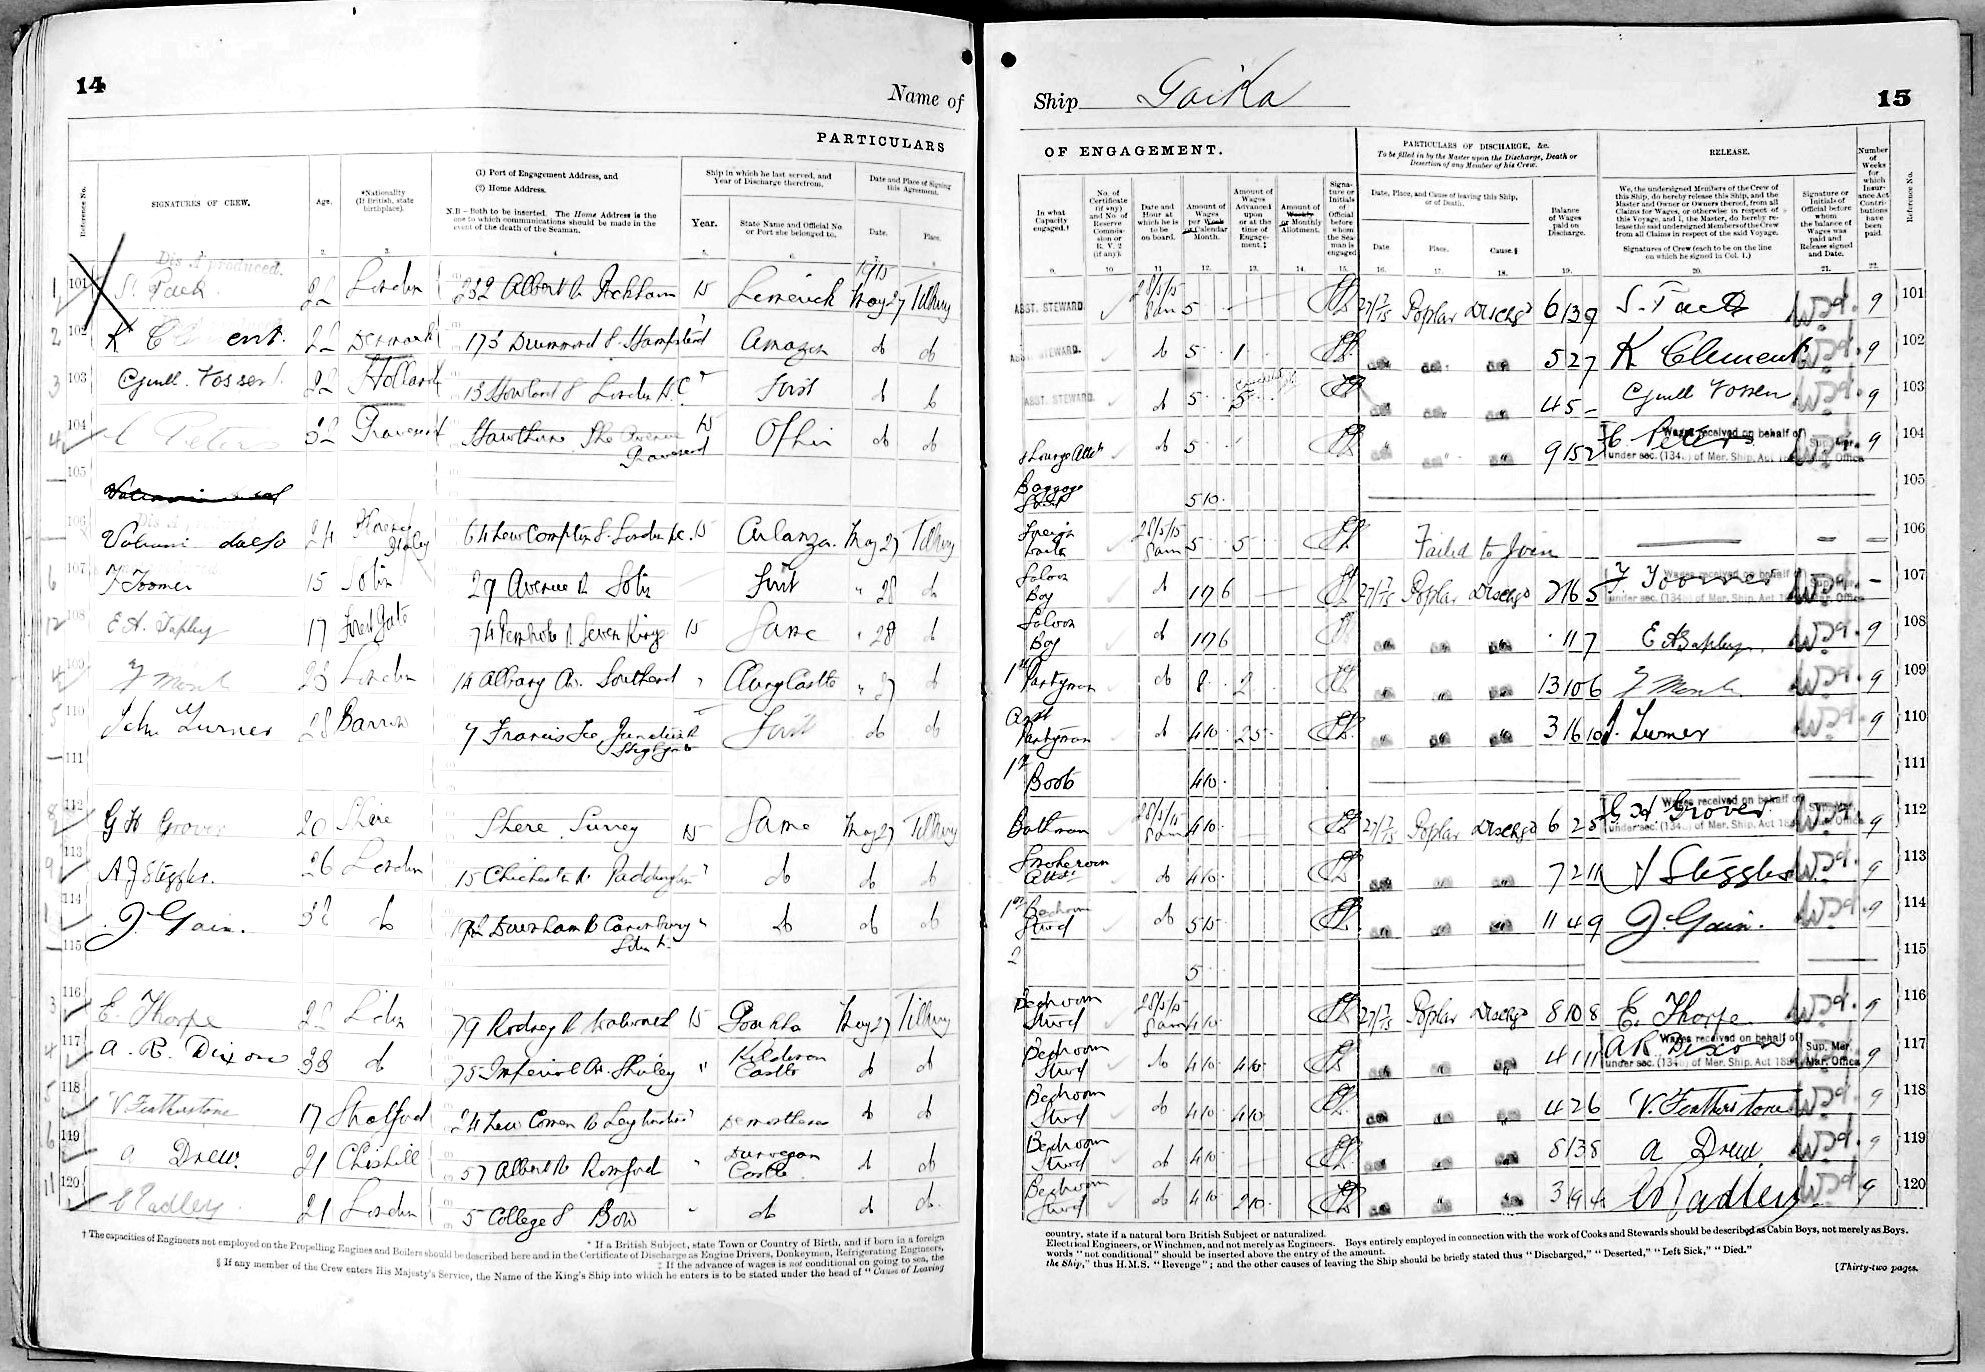 14
Name of
PARTICULARS
Reference No.
SIGNATURES OF CREW.
Age.
*Nationality (If British, state birthplace).
(1) Port of Engagement Address, and
(2) Home Address.
N.B - Both to be inserted. The Home Address is the one to which communications should be made in the event of the death of the Seaman.
Ship in which he last served, and Year of Discharge therefrom.
Year.
State Name and Official No or Port she belonged to.
Date and Place of Signing this Agreement.
Date.
Place.
Dis A produced.
1915
101 22 London 232 Albert Rd Peckham 15 Limerick May 27 Tilbury
102 K Clement. 22 Denmark 175 Drummond St Hampstead Amazon do do
103 22 Holland 13 Howland St London First do do
104 C Peters 32 Gravesend Hawthorne The Avenue Gravesend 15 Ophir do do
105
106 24 London 15 Arlanza May 27 Tilbury
107 F Toomer 15 29 Avenue Rd First " 28 do
108 E A. Tapley 17 Forest Gate Seven Kings 15 Same " 28 do
109 F Monk 23 London 14 Albany Av. Southend " " 27 do
110 John Turner 28 Barrow 7 Francis Highgate First do do
111
112 G H Grover 20 Shere Shere Surrey 15 Same May 27 Tilbury
113 A J Steggles. 26 London 15 Chichester Rd Paddington " do do do
114 J. Gain. 32 do Durham Rd Canonbury " do do do
115
116 E. Thorpe 22 79 Rodney Rd 15 Gourkha May 27 Tilbury
117 A. R. Dixon 38 do 75 Imperial Av. Shirley " Kildonan Castle do do
118 V Featherstone 17 Stratford 24 do do
119 A Drew. 21 Chishill 57 Albert Rd Romford " Dunvegan Castle do do
120 Radley. 21 London 5 College St Bow " do do do
* If a British Subject, state Town or Country of Birth, and if born in a foreign
† The capacities of Engineers not employed on the Propelling Engines and Boilers should be described here and in the Certificate of Discharge as Engine Drivers, Donkeymen, Refrigerating Engineers,
‡ If the advance of wages is not conditional on going to sea, the
§ If any member of the Crew enters His Majesty's Service, the Name of the King's Ship into which he enters is to be stated under the head of "Cause of Leaving
Ship Gaika
15
OF ENGAGEMENT.
PARTICULARS OF DISCHARGE, &c.
To be filled in by the Master upon the Discharge, Death or Desertion of any Member of his Crew.
RELEASE.
In what Capacity engaged.†
No. of Certificate (if any) and No. of Reserve Commission or R.V.2 (if any).
Date and Hour at which he is to be on board.
Amount of Wages per Week or Calendar Month.
Amount of Wages Advanced upon or at the time of Engagement.‡
Amount of Weekly or Monthly Allotment.
Signature or Initials of Official before whom the Seaman is engaged
Date, Place, and Cause of leaving this Ship, or of Death.
Date
Place.
Cause.§
Balance of Wages paid on Discharge.
We, the undersigned Members of the Crew of this Ship, do hereby release this Ship, and the Master and Owner or Owners thereof, from all Claims for Wages, or otherwise in respect of this Voyage, and I, the Master, do hereby release the said undersigned Members of the Crew from all Claims in respect of the said Voyage.
Signatures of Crew (each to be on the line on which he signed in Col. 1.)
Signature or Initials of Official before whom the balance of Wages was paid and Release signed and Date.
Number of Weeks for which Insurance Act Contributions have been paid.
Reference No.
9. 10 11 12. 13. 14. 15. 16. 17. 18. 19. 20. 21. 22.
ASST. STEWARD. 28/5/15 8am 5 27/7/15 Poplar Dischgd 6 13 9 9 101
ASST. STEWARD. do 5 1 5 2 7 K Clement 9 102
ASST. STEWARD. do 5 5 4 5 - 9 103
Lounge Attdt do 5 9 15 2 C. Peters 9 104
Wages received on behalf of
under sec. (134) of Mer. Ship. Act
Baggage Stwd 5 10 105
Foreign 28/5/15 8am 5 5 Failed to Join — 106
Saloon Boy do 17 6 27/7/15 Poplar Dischgd 2 16 5 F Toomer - 107
Wages received on behalf of
under sec. (134) of Mer. Ship. Act
Saloon Boy do 17 6 11 7 E A Tapley 9 108
1st Pantryman do 8 2 13 10 6 F Monk 9 109
Asst Pantryman do 4 10 2 5 3 16 10 J. Turner 9 110
1st Boots 4 10 111
Bathman 28/5/15 8am 4 10 27/7/15 Poplar Dischgd 6 2 5 G. H. Grover 9 112
Wages received on behalf of
under sec. (134) of Mer. Ship. Act
Smokeroom Attdt do 4 10 7 2 11 A J Steggles 9 113
1st Bedroom Stwd do 5 15 11 4 9 J. Gain. 9 114
2 5 115
Bedroom Stwd 28/5/15 8am 4 10 27/7/15 Poplar Dischgd 8 10 8 E. Thorpe 9 116
Bedroom Stwd do 4 10 4 10 4 1 11 A R Dixon 9 117
Wages received on behalf of
under sec. (134) of Mer. Ship. Act
Sup. Mer. Mar. Office
Bedroom Stwd do 4 10 4 10 4 2 6 V. Featherstone 9 118
Bedroom Stwd do 4 10 8 13 8 A Drew 9 119
Bedroom Stwd do 4 10 2 10 3 19 4 Radley 9 120
country, state if a natural born British Subject or naturalized.
Electrical Engineers, or Winchmen, and not merely as Engineers. Boys entirely employed in connection with the work of Cooks and Stewards should be described as Cabin Boys, not merely as Boys.
words "not conditional" should be inserted above the entry of the amount.
the Ship," thus H.M.S. "Revenge"; and the other causes of leaving the Ship should be briefly stated thus "Discharged," "Deserted," "Left Sick," "Died."
[Thirty-two pages.